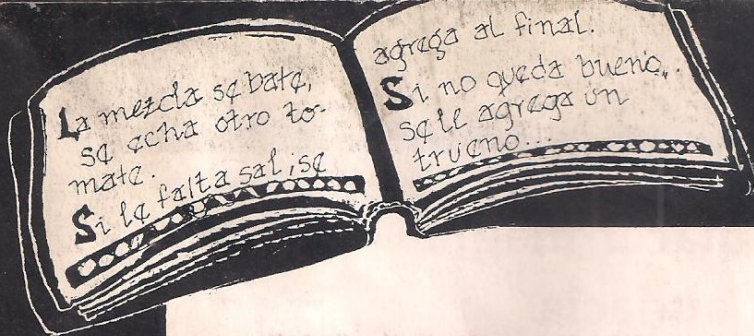 La mezcla se bate,
se echa otro to-
mate.
Si le falta sal, se
agrega al final.
Si no queda bueno,..
se le agrega un
trueno...